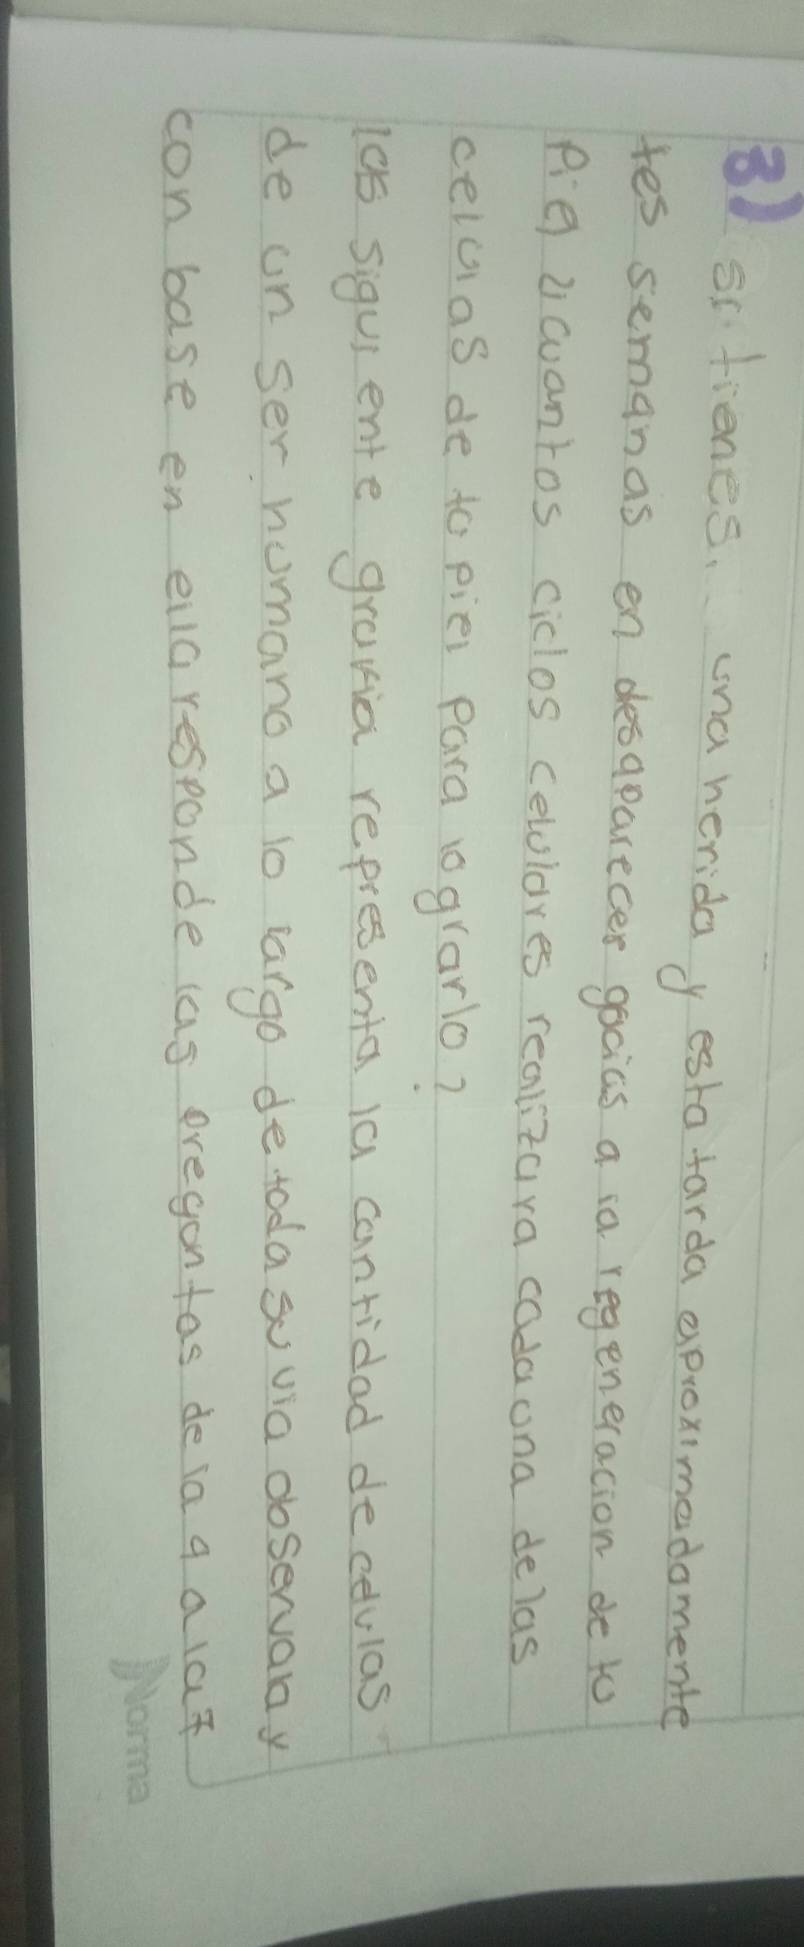 3) si tienes. una herida y esta tarda aproximadamente
tes semanas en desaparecer gacias a la regeneracion de to
Piel ¿icuantos ciclos celulares realizara cada una de las
celulas de to piel para lograrlo?
las siguiente grafia representa la cantidad de celulas
de un ser humano a lo largo de toda su via observala y
con base en ella responde las pregontas de la 4 a la 7
Norma